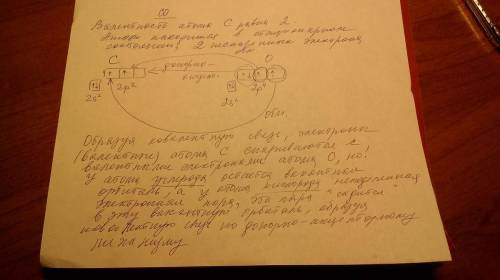 CO
Валентность атома C равна 2.
Атом находится в
состоянии, 2 неспаренных электрона
C O
донорно-
2p² 2p⁴
2s² 2s²
обм.
Образуя ковалентную связь, электроны
(валентные) атома C спариваются с
валентными электронами атома O, но!
у атома углерода остается вакантная
орбиталь, а у атома кислорода неподеленная
электронная пара, эта пара "садится"
в эту вакантную орбиталь, образуя
ковалентную связь по донорно-акцепторному
механизму